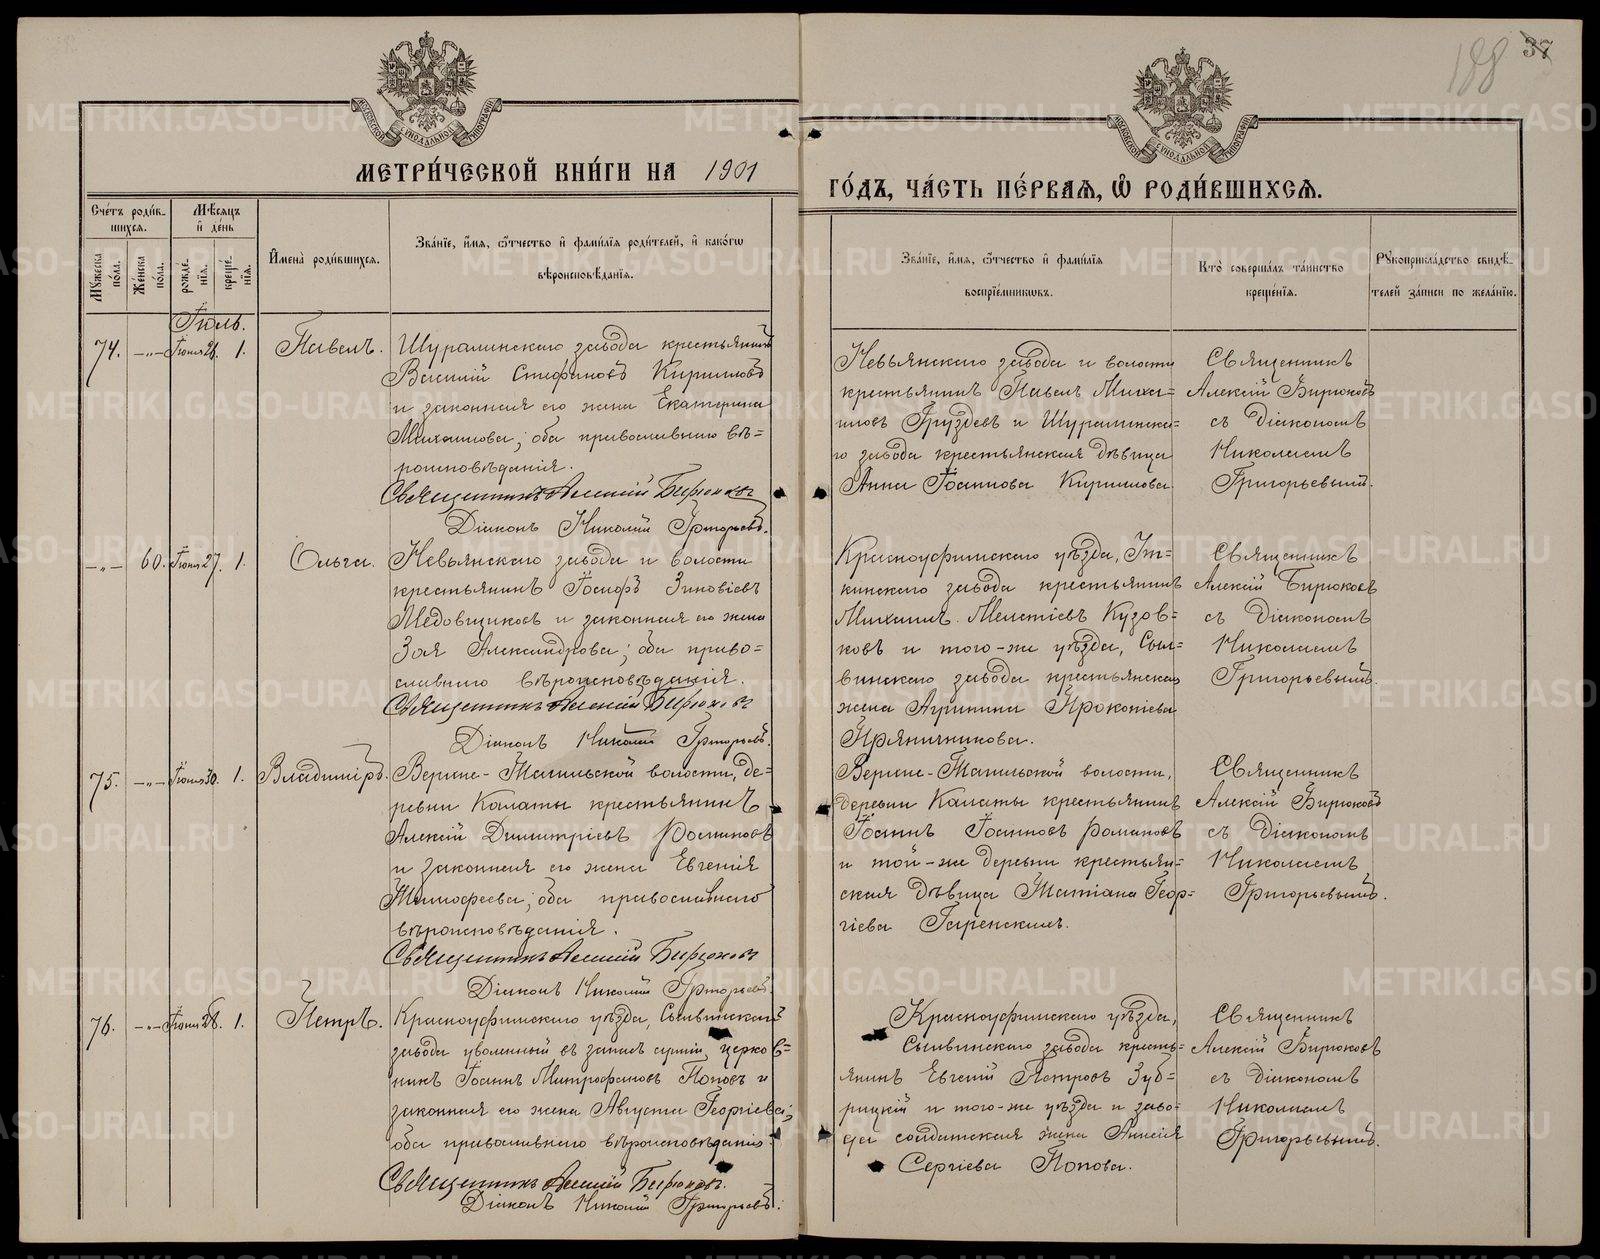 188 37
МЕТРИ́ЧЕСКОЙ КНИ́ГИ НА 1901
ГО́ДЪ, ЧА́СТЬ ПЕ́РВАЯ, Ѽ РОДИ́ВШИХСЯ.
Сче́тъ роди́в-
шихся.
Му́жеска по́ла.
Же́нска по́ла.
Мѣ́сяцъ и҆ де́нь
рожде́-
нїя.
креще́-
нїя.
И҆мена̀ роди́вшихся.
Зва́нїе, и҆́мя, ѻ҆́тчество и҆ фами́лїя роди́телей, и҆ како́гѡ
вѣроисповѣ́данїя.
Зва́нїе, и҆́мя, ѻ҆́тчество и҆ фами́лїя
воспрїе́мниковъ.
Кто̀ соверша́лъ та́инство
креще́нїя.
Рꙋкоприкла́дство свидѣ́-
телей за́писи по жела́нїю.
Іюль.
74. —„— Іюня 26. 1. Павелъ.
Шуралинскаго завода крестьянинъ
Василій Стефановъ Кирилловъ
и законная его жена Екатерина
Михаилова; оба православнаго вѣ=
роисповѣданія.
Священникъ Алексій Бирюковъ
Діаконъ Николай Григорьевъ.
Невьянскаго завода и волости
крестьянинъ Павелъ Михаи=
иловъ Груздевъ и Шуралинска=
го завода крестьянская дѣвица
Анна Іоаннова Кириллова
Священникъ
Алексій Бирюковъ
съ Діакономъ
Николаемъ
Григорьевымъ.
—„— 60. Іюня 27. 1. Ольга.
Невьянскаго завода и волости
крестьянинъ Іосифъ Зиновіевъ
Медовщиковъ и законная его жена
Зоя Александрова; оба право=
славнаго вѣроисповѣданія.
Священникъ Алексій Бирюковъ
Діаконъ Николай Григорьевъ.
Красноуфимскаго уѣзда, Ут=
кинскаго завода крестьянинъ
Михаилъ Мелетіевъ Кузов=
ковъ и того-же уѣзда, Сыл=
винскаго завода крестьянская
жена Агрипина Прокопіева
Пряничникова.
Священникъ
Алексій Бирюковъ
съ Діакономъ
Николаемъ
Григорьевымъ.
75. —„— Іюня 30. 1. Владиміръ.
Верхне-Тагильской волости, де=
ревни Калаты крестьянинъ
Алексій Димитріевъ Романовъ
и законная его жена Евгенія
Тимофеева; оба православнаго
вѣроисповѣданія.
Священникъ Алексій Бирюковъ
Діаконъ Николай Григорьевъ.
Верхне-Тагильской волости,
деревни Калаты крестьянинъ
Іоаннъ Іоанновъ Романовъ
и той-же деревни крестьян=
ская дѣвица Татіана Геор=
гіева
Священникъ
Алексій Бирюковъ
съ Діакономъ
Николаемъ
Григорьевымъ.
76. —„— Іюня 28. 1. Петръ.
Красноуфимскаго уѣзда, Сылвинскаго
завода уволенный въ запасъ арміи,
Іоаннъ Митрофановъ Поповъ и
законная его жена Августа Георгіева;
оба православнаго вѣроисповѣданія.
Священникъ Алексій Бирюковъ.
Діаконъ Николай Григорьевъ.
Красноуфимскаго уѣзда,
Сылвинскаго завода кресть=
янинъ Евгеній Петровъ Зуб=
рицкій и того-же уѣзда и заво=
да солдатская жена Анисія
Сергіева Попова.
Священникъ
Алексій Бирюковъ
съ Діакономъ
Николаемъ
Григорьевымъ.